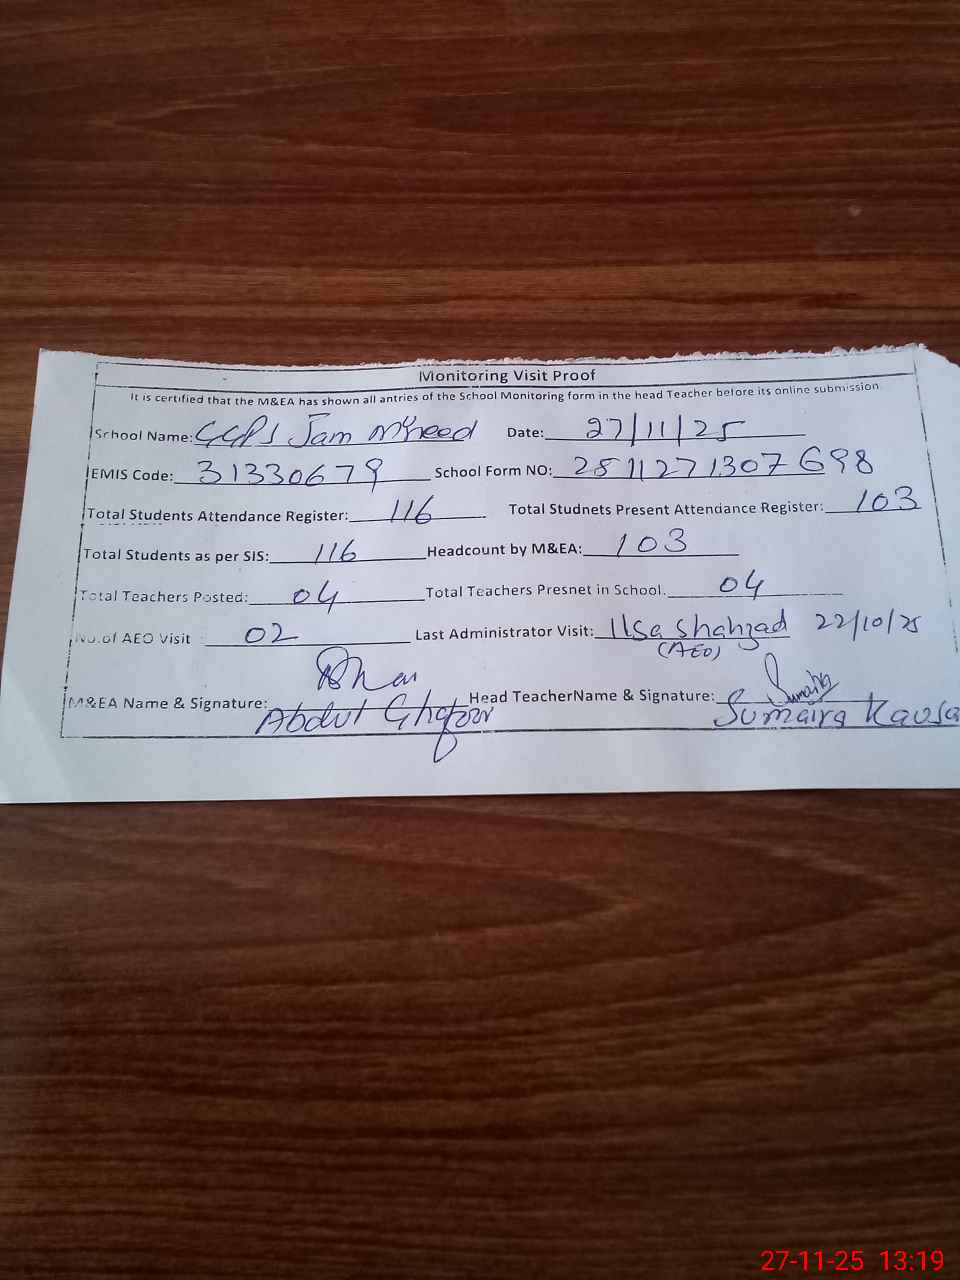 Monitoring Visit Proof
It is certified that the M&EA has shown all antries of the School Monitoring form in the head Teacher before its online submission
School Name: GGPS Jam Date: 27/11/25
EMIS Code: 31330679 School Form NO: 2811271307698
Total Students Attendance Register: 116 Total Studnets Present Attendance Register: 103
Total Students as per SIS: 116 Headcount by M&EA: 103
Total Teachers Posted: 04 Total Teachers Presnet in School. 04
No.of AEO Visit : 02 Last Administrator Visit: Ilsa Shahzad 22/10/25
(AEO)
M&EA Name & Signature: Abdul Ghafoor Head TeacherName & Signature: Sumaira
Sumaira Kausa
27-11-25 13:19